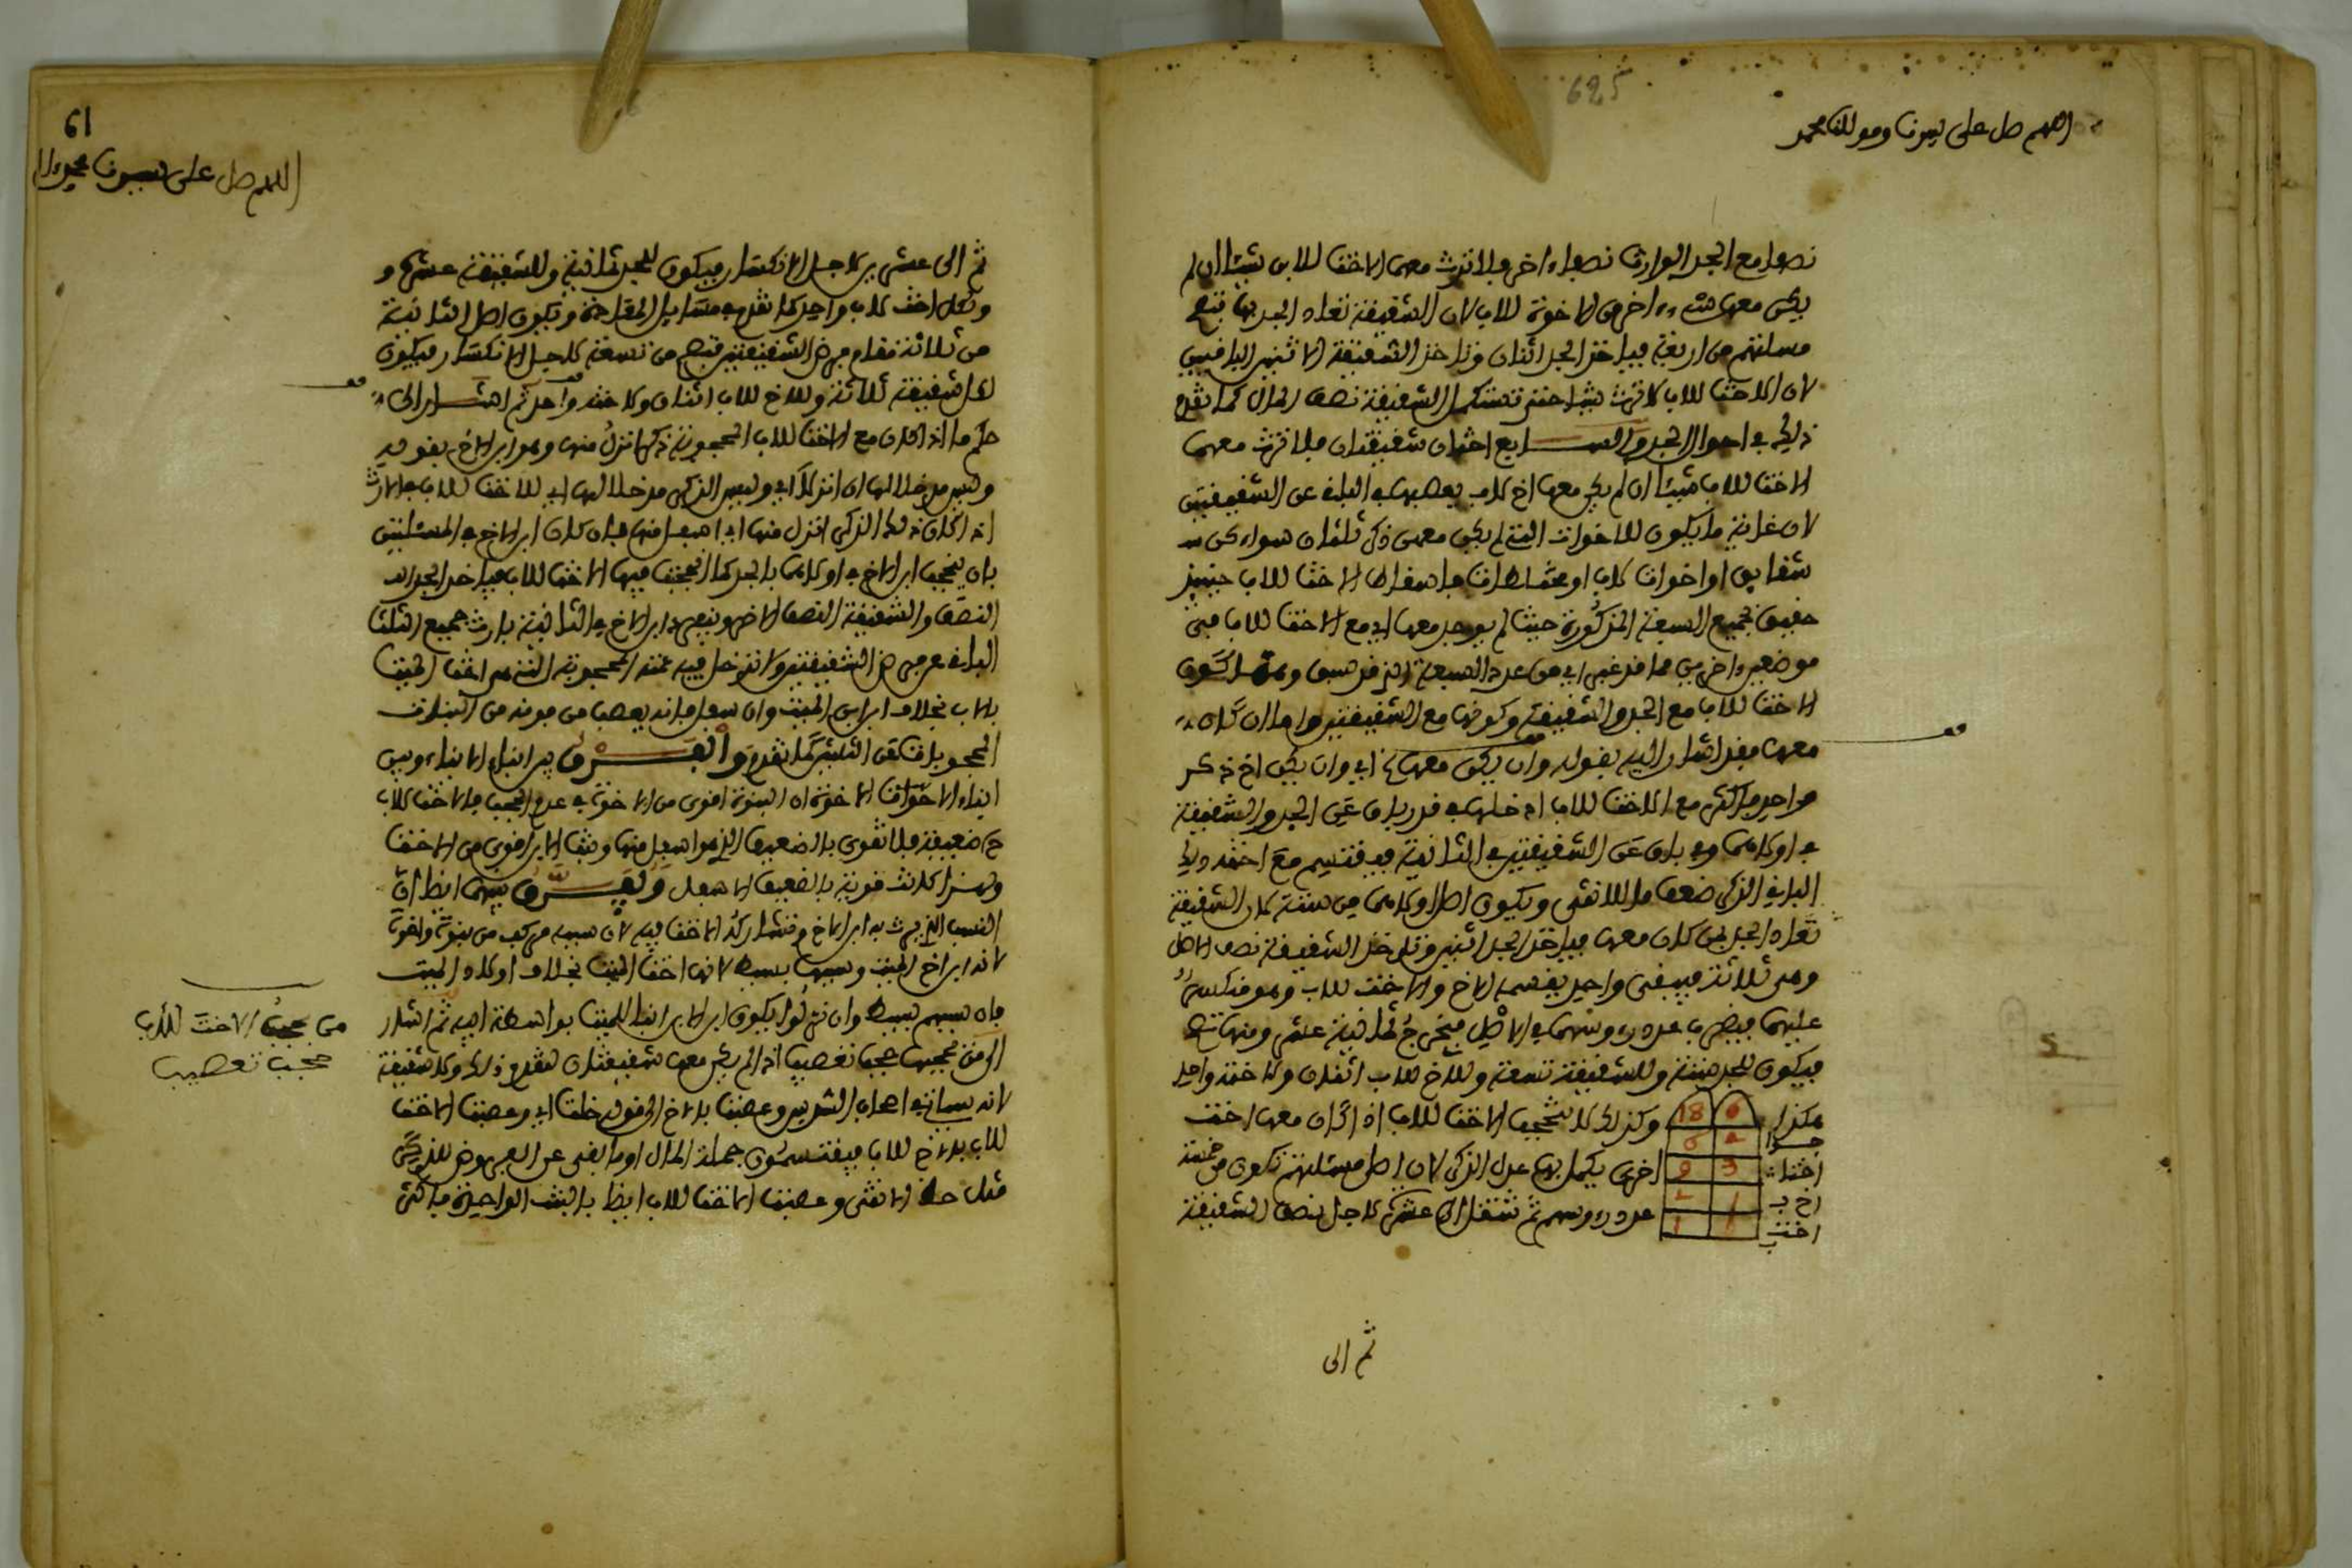 625
اللهم صل على سيدنا ومولانا محمد
نصفا مع الجد الوارث نصفا ءاخر فلا ترث معهما الاخت للاب شيئا ان لم
يكن معها شيء ءاخر من الاخوة للاب لان الشقيقة تعاد الجد بها فتصح
مسئلتهم من اربعة فياخذ الجد اثنان وتاخذ الشقيقة الاثنين الباقيين
لان الاخت للاب لا ترث شيئا حتى تستكمل الشقيقة نصف المال كما تقدم
ذلك في احوال الجد والسابع اختان شقيقتان فلا ترث معهما
الاخت للاب شيئا ان لم يكن معها اخ لاب يعصبها في الباقي عن الشقيقتين
لان غاية ما يكون للاخوات التي لم يكن معهن ذكر ثلثان سواء كن
شقايق او اخوات لاب او مختلطات فاسقاط الاخت للاب حينيذ
حقيق بجميع السبعة المذكورة حيث لم يوجد معها اي مع الاخت للاب في
موضعين ءاخرين مما قد غبر اي من عدد السبعة الذي قد سبق وهما كون
الاخت للاب مع الجد والشقيقة وكونها مع الشقيقتين واما ان كان
معها فقد اشار اليه بقوله وان يكن معها اي وان يكن اخ ذكر
واحد فاكثر مع الاخت للاب ادخلها في قدر باق عن الجد والشقيقة
في اولاهما وفي باق عن الشقيقتين في الثانية فيقتسم مع اخته ذلك
الباقي الذكر ضعف ما للانثى ويكون اصل اولاهما من ستة لان الشقيقة
تعاد الجد بمن كان معها فياخذ الجد اثنين وتاخذ الشقيقة نصف الاصل
وهي ثلاثة فيبقى واحد يقسمه الاخ والاخت للاب وهو منكسر
عليهما فيضرب عدد رءوسهما في الاصل فيخرج ثمانية عشر ومنها تصح
فيكون للجد ستة وللشقيقة تسعة وللاخ للاب اثنان ولاخته واحد
هكذا 6 18 وكذلك لا تحجب الاخت للاب اذا كان معها اخت
جد 2 6
اختقة 3 9 اخرى يكمل بها عدل الذكر لان اصل مسئلتهم تكون من خمسة
اخ ب 1 2
اخت ب 1 1 عدد رءوسهم ثم تنتقل الى عشرة لاجل نصف الشقيقة
ثم الى
61
اللهم صل على سيدنا محمد وءاله
ثم الى عشرين لاجل الانكسار فيكون للجد ثمانية وللشقيقة عشرة و
ولكل اخت لاب واحد كما تقدم في مسايل المقاسمة ويكون اصل الثانية
من ثلاثة مقام فرض الشقيقتين فتصح من تسعة لاجل الانكسار فيكون
لكل شقيقة ثلاثة وللاخ للاب اثنان ولاخته واحد ثم اشار الى
حكم ما اذا كان مع الاخت للاب المحجوبة ذكر انزل منها وهو ابن الاخ بقوله
وليس مدخلا لها ان انزلا اي وليس الذكر مدخلا لها اي للاخت للاب في الارث
اذا كان ذلك الذكر انزل منها اي اسفل منها فان كان ابن الاخ في المسئلتين
بان يحجب ابن الاخ في اولاهما بالجد كما انحجبت فيها الاخت للاب فياخذ الجد
النصف والشقيقة النصف الاخر وينفرد ابن الاخ في الثانية بارث جميع الثلث
الباقي عن فرض الشقيقتين ولا تدخل فيه عمته المحجوبة التي هي اخت الميت
بالاب بخلاف ابن ابن الميت وان سفل فانه يعصب من فوقه من البنات
المحجوبات عن الثلثين كما تقدم والفرق بين ابناء الابناء وبين
ابناء الاخوات الاخوة ان البنوة اقوى من الاخوة في عدم الحجب فالاخت للاب
ح ضعيفة فلا تقوى بالضعيف الذي هو اسفل منها وبنت الابن اقوى من الاخت
ولهذا كانت قوية بالضعيف الاسفل ويفرق بينهما ايضا ان
النسب الذي يرث به ابن الاخ وتشاركه الاخت فيه لان سببه مركب من بنوة واخوة
لانه ابن اخ الميت وسببها بسيط لانها اخت الميت بخلاف اولاد الميت
فان سببهم بسيط وان نزلوا بكون ابن الابن ابنا للميت بواسطة ابيه ثم اشار
الى من يحجبها حجب تعصيب اذا لم يكن معها شقيقتان لتقدم ذلك ولا شقيقة
لانه سياتي في احوال الشريس وعصبت بالاخ الى قوله خلت اي وعصبت الاخت
للاب بالاخ للاب فيقتسمون جملة المال او ما بقي عن الفروض للذكر
مثل حظ الانثى وعصبت الاخت للاب ايضا بالبنت الواحدة فاكثر
من يحجب الاخت للاب
حجب تعصيب